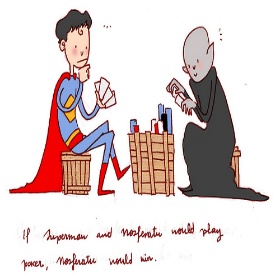 If Superman and Nosferatu would play
poker, Nosferatu would win.